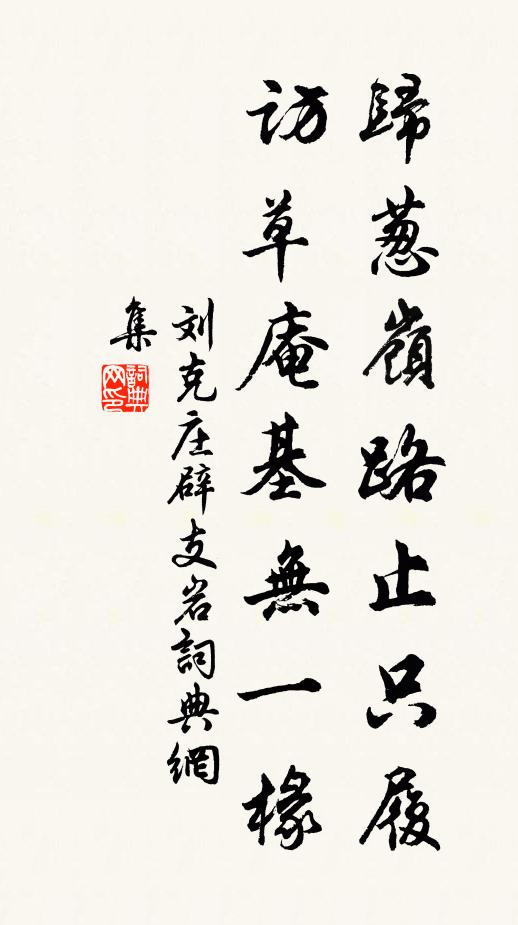 歸葱嶺路止只履
訪草庵基無一椽
刘克庄辟支岩詞典網
集
詞典网印